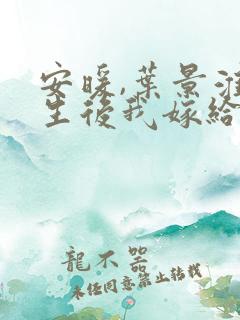 安暖,葉景淮
生後我嫁給
龍不器
未經同意禁止轉載